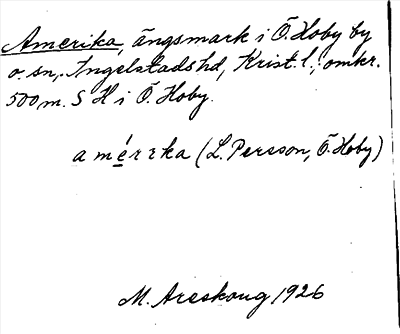 Amerika, ängsmark i Ö. Hoby by
o. sn, Ingelstads hd, Krist. l., omkr.
500 m. S H i Ö. Hoby.
amérɩka (L. Persson, Ö. Hoby)
M. Areskoug 1926